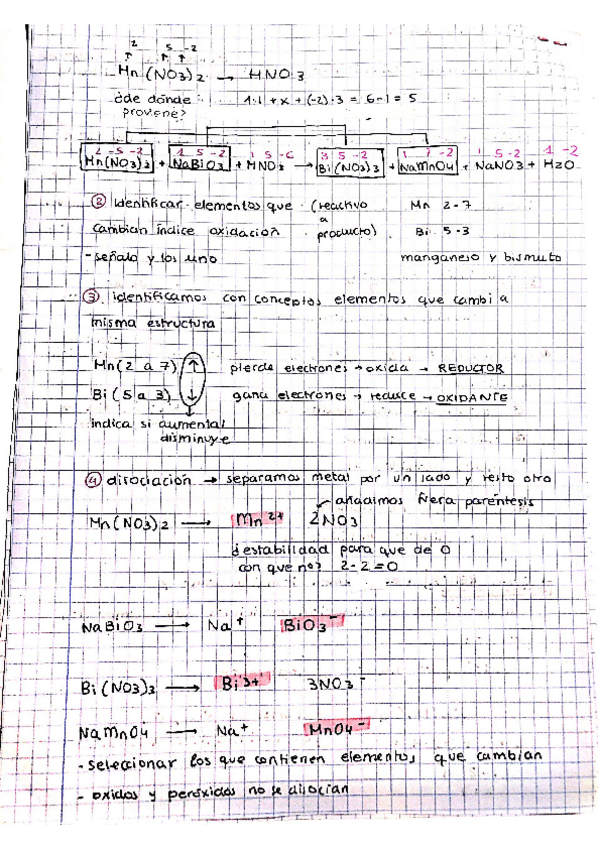 2 5 -2
Mn (NO3)2 → HNO3
¿de dónde 1·1 + x + (-2)·3 = 6-1 = 5
proviene?
2 -5 -2 1 5 -2 1 5 -6 3 5 -2 1 7 -2 1 5 -2 1 -2
Mn(NO3)2 + NaBiO3 + HNO3 → Bi(NO3)3 + NaMnO4 + NaNO3 + H2O
② Identificar elementos que (reactivo Mn 2-7
a
cambian índice oxidación producto) Bi 5-3
- señalo y los uno manganeso y bismuto
③ identificamos con conceptos elementos que cambia
misma estructura
Mn (2 a 7) ↑ pierde electrones → oxida → REDUCTOR
Bi (5 a 3) ↓ gana electrones → reduce → OXIDANTE
indica si aumenta/
disminuye
④ disociación → separamos metal por un lado y resto otro
añadimos fuera paréntesis
Mn(NO3)2 → Mn2+ 2NO3
¿estabilidad para que de 0
con que no? 2-2=0
NaBiO3 → Na+ BiO3-
Bi(NO3)3 → Bi3+ 3NO3-
NaMnO4 → Na+ MnO4-
- seleccionar los que contienen elementos que cambian
- oxidos y peróxidos no se disocian